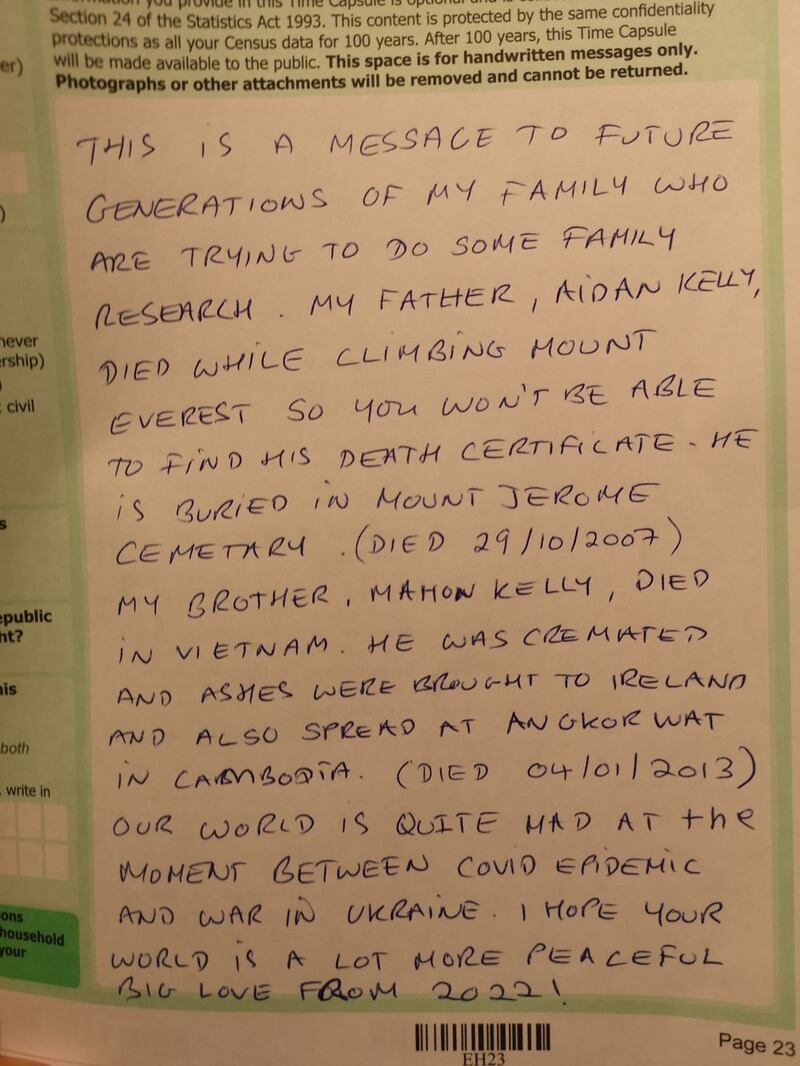 you provide in this Time Capsule is optional and is
Section 24 of the Statistics Act 1993. This content is protected by the same confidentiality
protections as all your Census data for 100 years. After 100 years, this Time Capsule
will be made available to the public. This space is for handwritten messages only.
Photographs or other attachments will be removed and cannot be returned.
er)
)
never
rship)
)
civil
s
epublic
ht?
nis
both
write in
ons
household
your
THIS IS A MESSAGE TO FUTURE
GENERATIONS OF MY FAMILY WHO
ARE TRYING TO DO SOME FAMILY
RESEARCH. MY FATHER, AIDAN KELLY,
DIED WHILE CLIMBING MOUNT
EVEREST SO YOU WON'T BE ABLE
TO FIND HIS DEATH CERTIFICATE. HE
IS BURIED IN MOUNT JEROME
CEMETARY. (DIED 29/10/2007)
MY BROTHER, MAHON KELLY, DIED
IN VIETNAM. HE WAS CREMATED
AND ASHES WERE BROUGHT TO IRELAND
AND ALSO SPREAD AT ANGKOR WAT
IN CAMBODIA. (DIED 04/01/2013)
OUR WORLD IS QUITE MAD AT the
MOMENT BETWEEN COVID EPIDEMIC
AND WAR IN UKRAINE. I HOPE YOUR
WORLD IS A LOT MORE PEACEFUL
BIG LOVE FROM 2022!
EH23
Page 23